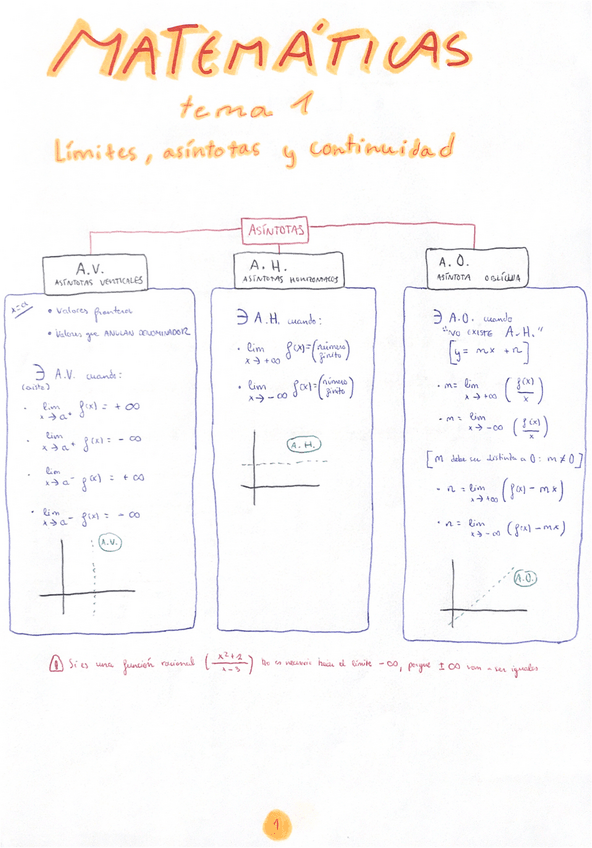 MATEMÁTICAS
tema 1
Límites, asíntotas y continuidad
ASÍNTOTAS
A.V.
ASÍNTOTAS VERTICALES
x=a
• Valores frontera
• Valores que ANULAN DENOMINADOR
∃ A.V. cuando:
(existe)
• lim x→a⁺ f(x) = +∞
• lim x→a⁺ f(x) = -∞
• lim x→a⁻ f(x) = +∞
• lim x→a⁻ f(x) = -∞
A.V.
A.H.
ASÍNTOTAS HORIZONTALES
∃ A.H. cuando:
• lim x→+∞ f(x) = (número finito)
• lim x→-∞ f(x) = (número finito)
A.H.
A.O.
ASÍNTOTA OBLÍCUA
∃ A.O. cuando
"NO EXISTE A.H."
[y = mx + n]
• m = lim x→+∞ (f(x)/x)
• m = lim x→-∞ (f(x)/x)
[m debe ser distinto a 0: m ≠ 0]
• n = lim x→+∞ (f(x) - mx)
• n = lim x→-∞ (f(x) - mx)
A.O.
Si es una función racional (x²+2/x-3) No es necesario hacer el límite -∞, porque ±∞ van a ser iguales
1